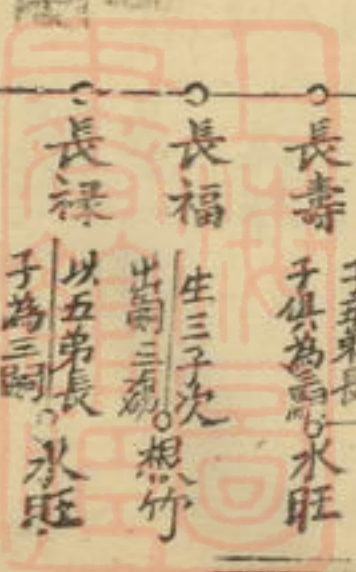 長壽
子五弟長
子俱為嗣
水旺
長福
生三子次
出嗣三
想竹
長禄
以五弟長
子為三嗣
水旺